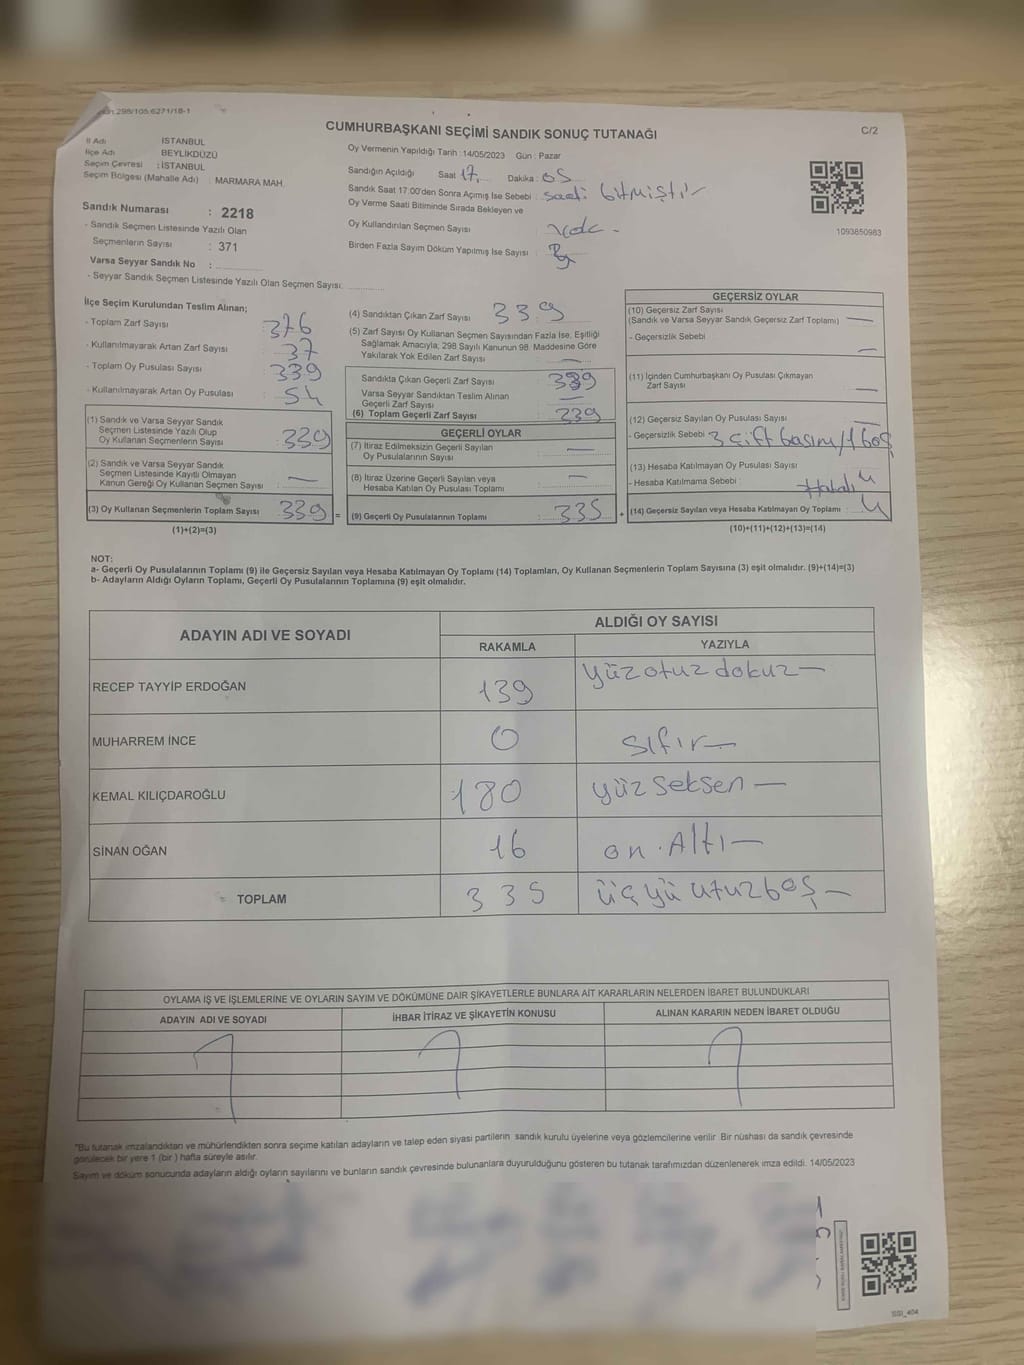 298/105:6271/18-1
CUMHURBAŞKANI SEÇİMİ SANDIK SONUÇ TUTANAĞI
C/2
İl Adı İSTANBUL
İlçe Adı BEYLİKDÜZÜ
Seçim Çevresi : İSTANBUL
Seçim Bölgesi (Mahalle Adı) : MARMARA MAH.
Oy Vermenin Yapıldığı Tarih : 14/05/2023 Gün : Pazar
Sandığın Açıldığı Saat 17. Dakika : 05
Sandık Saat 17:00'den Sonra Açımış İse Sebebi : saati bitmiştir
Oy Verme Saati Bitiminde Sırada Bekleyen ve
Oy Kullandırılan Seçmen Sayısı
Birden Fazla Sayım Döküm Yapılmış İse Sayısı :
1093850983
Sandık Numarası : 2218
- Sandık Seçmen Listesinde Yazılı Olan
Seçmenlerin Sayısı : 371
Varsa Seyyar Sandık No :
- Seyyar Sandık Seçmen Listesinde Yazılı Olan Seçmen Sayısı:
İlçe Seçim Kurulundan Teslim Alınan;
- Toplam Zarf Sayısı 376
- Kullanılmayarak Artan Zarf Sayısı 37
- Toplam Oy Pusulası Sayısı 339
- Kullanılmayarak Artan Oy Pusulası 54
(1) Sandık ve Varsa Seyyar Sandık
Seçmen Listesinde Yazılı Olup
Oy Kullanan Seçmenlerin Sayısı 339
(2) Sandık ve Varsa Seyyar Sandık
Seçmen Listesinde Kayıtlı Olmayan
Kanun Gereği Oy Kullanan Seçmen Sayısı : —
(3) Oy Kullanan Seçmenlerin Toplam Sayısı 339 =
(1)+(2)=(3)
(4) Sandıktan Çıkan Zarf Sayısı : 339
(5) Zarf Sayısı Oy Kullanan Seçmen Sayısından Fazla İse, Eşitliği
Sağlamak Amacıyla; 298 Sayılı Kanunun 98. Maddesine Göre
Yakılarak Yok Edilen Zarf Sayısı : —
Sandıkta Çıkan Geçerli Zarf Sayısı : 339
Varsa Seyyar Sandıktan Teslim Alınan
Geçerli Zarf Sayısı : —
(6) Toplam Geçerli Zarf Sayısı : 339
GEÇERLİ OYLAR
(7) İtiraz Edilmeksizin Geçerli Sayılan
Oy Pusulalarının Sayısı : —
(8) İtiraz Üzerine Geçerli Sayılan veya
Hesaba Katılan Oy Pusulası Toplamı : —
(9) Geçerli Oy Pusulalarının Toplamı : 335 +
GEÇERSİZ OYLAR
(10) Geçersiz Zarf Sayısı
(Sandık ve Varsa Seyyar Sandık Geçersiz Zarf Toplamı) —
- Geçersizlik Sebebi : —
(11) İçinden Cumhurbaşkanı Oy Pusulası Çıkmayan
Zarf Sayısı : —
(12) Geçersiz Sayılan Oy Pusulası Sayısı
- Geçersizlik Sebebi : 3 çift basım/1 boş
(13) Hesaba Katılmayan Oy Pusulası Sayısı : 4
- Hesaba Katılmama Sebebi : Hatalı
(14) Geçersiz Sayılan veya Hesaba Katılmayan Oy Toplamı : 4
(10)+(11)+(12)+(13)=(14)
NOT:
a- Geçerli Oy Pusulalarının Toplamı (9) ile Geçersiz Sayılan veya Hesaba Katılmayan Oy Toplamı (14) Toplamları, Oy Kullanan Seçmenlerin Toplam Sayısına (3) eşit olmalıdır. (9)+(14)=(3)
b- Adayların Aldığı Oyların Toplamı, Geçerli Oy Pusulalarının Toplamına (9) eşit olmalıdır.
ADAYIN ADI VE SOYADI ALDIĞI OY SAYISI
RAKAMLA YAZIYLA
RECEP TAYYİP ERDOĞAN 139 yüz otuz dokuz
MUHARREM İNCE 0 sıfır
KEMAL KILIÇDAROĞLU 180 yüz seksen
SİNAN OĞAN 16 on Altı
TOPLAM 335 üçyü utuzbeş
OYLAMA İŞ VE İŞLEMLERİNE VE OYLARIN SAYIM VE DÖKÜMÜNE DAİR ŞİKAYETLERLE BUNLARA AİT KARARLARIN NELERDEN İBARET BULUNDUKLARI
ADAYIN ADI VE SOYADI İHBAR İTİRAZ VE ŞİKAYETİN KONUSU ALINAN KARARIN NEDEN İBARET OLDUĞU
"Bu tutanak imzalandıktan ve mühürlendikten sonra seçime katılan adayların ve talep eden siyasi partilerin sandık kurulu üyelerine veya gözlemcilerine verilir. Bir nüshası da sandık çevresinde
görülecek bir yere 1 (bir) hafta süreyle asılır.
Sayım ve döküm sonucunda adayların aldığı oyların sayılarını ve bunların sandık çevresinde bulunanlara duyurulduğunu gösteren bu tutanak tarafımızdan düzenlenerek imza edildi. 14/05/2023
SSİ_404